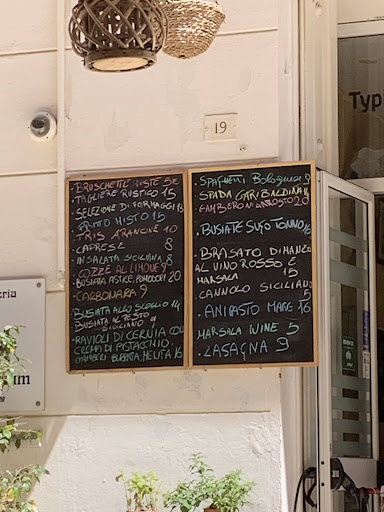 19
Typi
. BRUSCHETTE MISTE 5Z
. TAGLIERE RUSTICO 15
. SELEZIONE DI FORMAGGI 13
. FRITTO MISTO 15
. TRIS ARANCINE 10
. CAPRESE 8
. INSALATA SICILIANA 8
. COZZE AL LIMONE 9
. BUSIATA ASTICE, POMODORI 20
. CARBONARA 9
. BUSIATA ALLO SCOGLIO 14
BUSIATA AL PESTO
SICILIANO 9
. RAVIOLI DI CERNIA CON
CREMA DI PISTACCHIO
GAMBERI BURRATA, MENTA 16
. SPAGHETTI Bolognese 9
SPADA GARIBALDINA
GAMBERONI ARROSTO 20
. BUSIATE SUGO TONNO 16
. BRASATO DI MANZO
AL VINO ROSSO E
MARSALA 15
. CANNOLO SICILIANO
5
. ANTIPASTO MARE 16
MARSALA WINE 5
. LASAGNA 9
eria
um